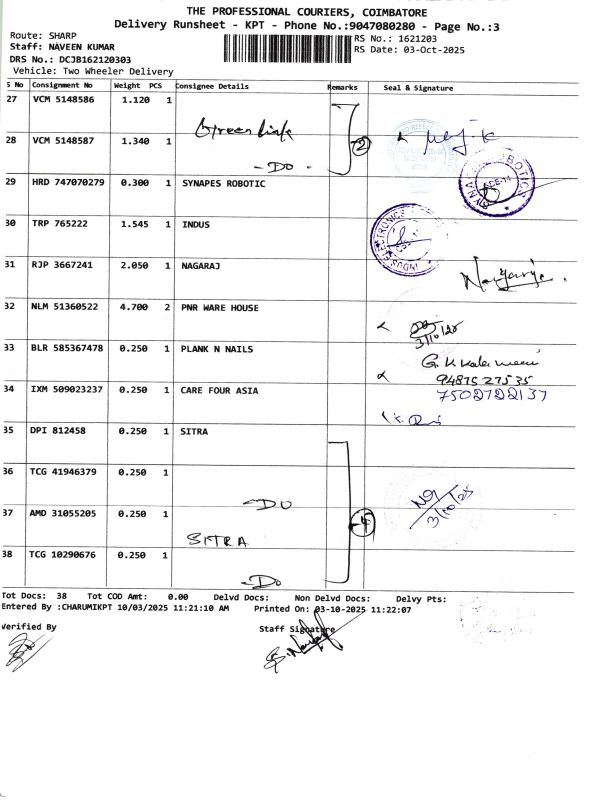 THE PROFESSIONAL COURIERS, COIMBATORE
Delivery Runsheet - KPT - Phone No.:9047080280 - Page No.:3
Route: SHARP
RS No.: 1621203
Staff: NAVEEN KUMAR
RS Date: 03-Oct-2025
DRS No.: DCJB162120303
Vehicle: Two Wheeler Delivery
S No Consignment No Weight PCS Consignee Details Remarks Seal & Signature
27 VCM 5148586 1.120 1
Green link
28 VCM 5148587 1.340 1 2
-DO-
29 HRD 747070279 0.300 1 SYNAPES ROBOTIC
30 TRP 765222 1.545 1 INDUS
31 RJP 3667241 2.050 1 NAGARAJ
32 NLM 51360522 4.700 2 PNR WARE HOUSE
3/10/25
33 BLR 585367478 0.250 1 PLANK N NAILS
9487527535
34 IXM 509023237 0.250 1 CARE FOUR ASIA
7502722137
35 DPI 812458 0.250 1 SITRA
36 TCG 41946379 0.250 1
-DO
3/10/25
37 AMD 31055205 0.250 1 4
SITRA
38 TCG 10290676 0.250 1
-DO
Tot Docs: 38 Tot COD Amt: 0.00 Delvd Docs: Non Delvd Docs: Delvy Pts:
Entered By :CHARUMIKPT 10/03/2025 11:21:10 AM Printed On: 03-10-2025 11:22:07
Verified By Staff Signature